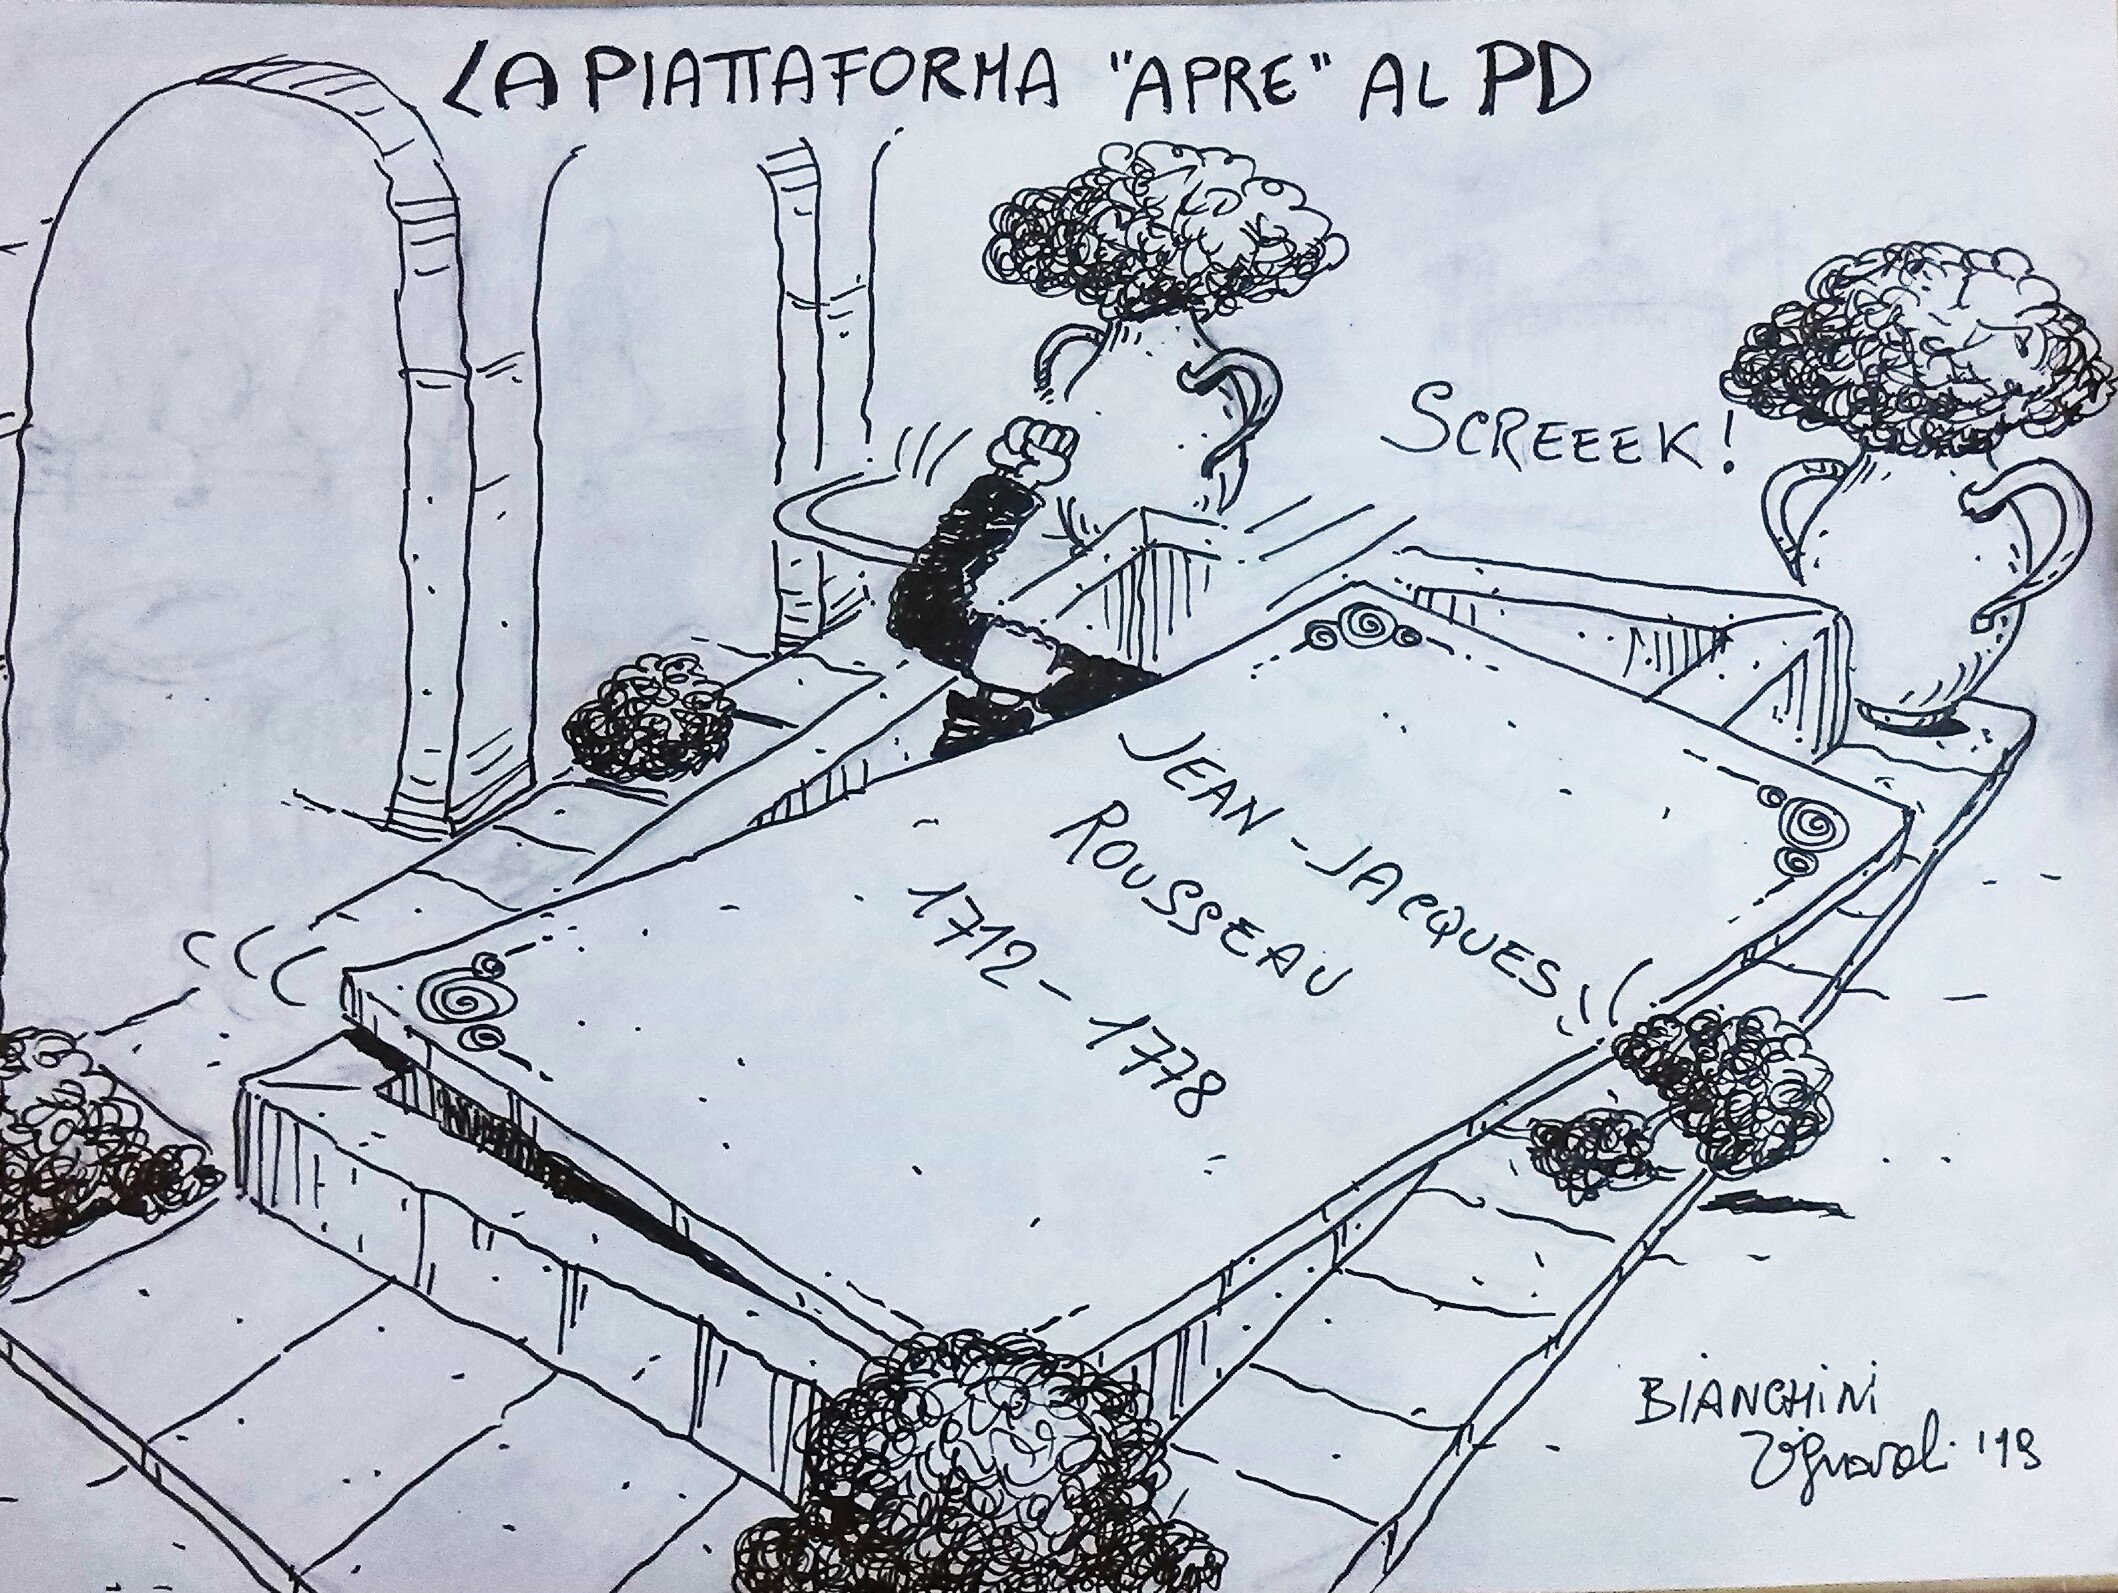 LA PIATTAFORMA "APRE" AL PD
SCREEEK!
JEAN-JACQUES
ROUSSEAU
1712-1778
BIANCHINI
'19